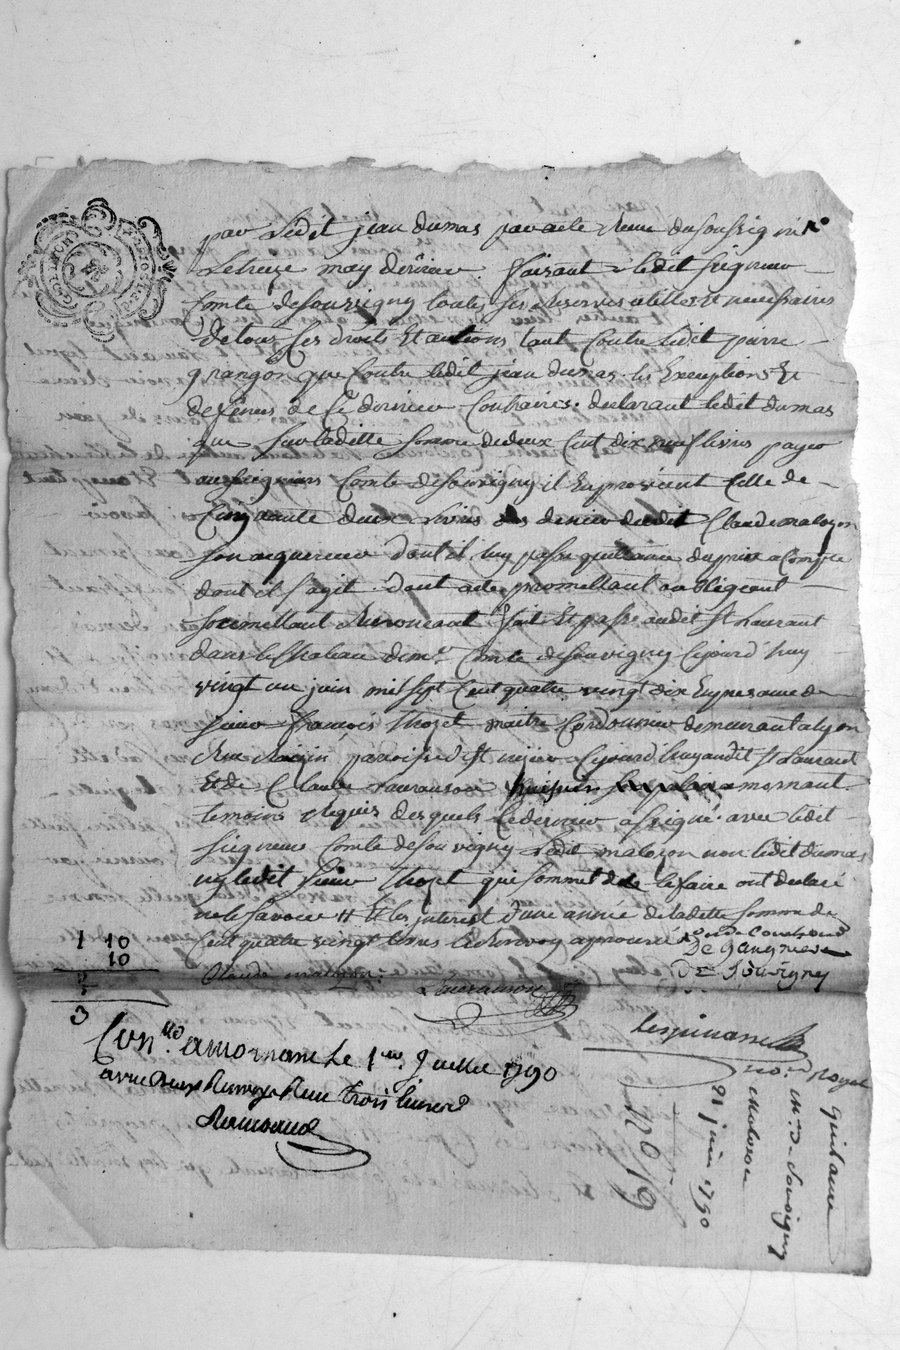 par ledit jean dumas par acte Reçu du soussigné n.re
Le treize may dernier faisant ledit seigneur
Comte de souvigny toutes ses Reserves utilles Et necessaires
De tous ses droits Et actions tant Contre ledit pierre
grangon que Contre ledit jean dumas les Exceptions Et
defenses de Ce dernier Contraires. declarant ledit dumas
que sur laditte somme de deux Cent dix neuf livres payée
audit seigneur Comte de souvigny il En provient Celle de
Cinquante deux livres des deniers dudit Claude malozon
son acquereur dont il luy passe quittance du prix a Compte
dont il s'agit. dont acte promettant oabligeant
soumettant Renonceant fait Et passé audit St Laurant
dans le Chateau de mr. Comte de souvigny Cejourd'huy
vingt un juin mil sept Cent quatre vingt dix En presance de
sieur françois thozet maitre Cordonnier demeurant a lyon
Rue paroisse de St nizier Cejourd'huy audit St Laurant
Et de Claude Lauranson huissier a mornant
temoins Requis desquels Le dernier a signé avec ledit
seigneur Comte de souvigny Ledit malozon non ledit dumas
ny ledit sieur thozet qui sommet de le faire ont declaré
ne le savoir # Et les interest d'une année de ladette somme de
Cent quatre vingt livres le Renvoy aprouvé
De gangnieres
De Souvigny
Claude malozon
Lauranson
1 10
10
3
Con.llé a mornant Le 1er. Juillet 1790
avec deux Renvoys Reçu trois livres
no.re Royal
Quittance
Mr. De Souvigny
Malozon
21 juin 1790